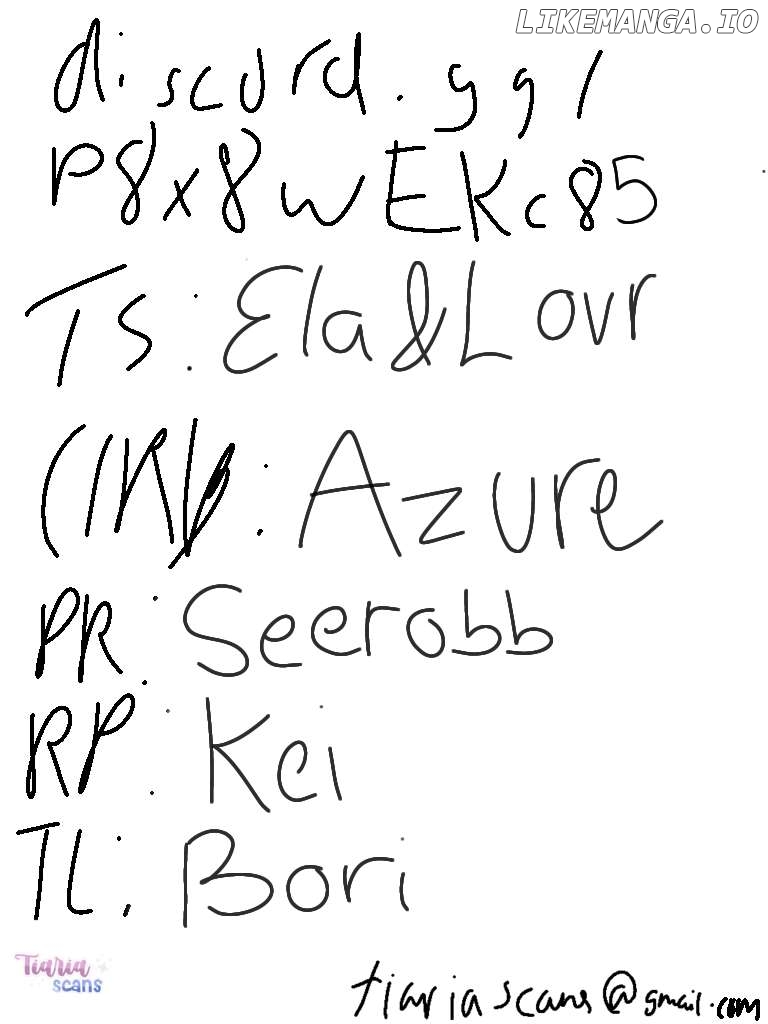 LIKEMANGA.IO
discord.gg/
P8x8wEKc85
TS: Ela&Lovr
: Azure
PR: Seerobb
RP: Kei
TL: Bori
Tiaria
scans
tiariascans@gmail.com